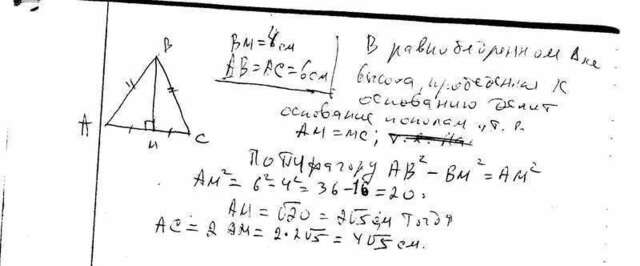 B
A
C
M
BM = 4 см
AB = AC = 6 см
В равнобедренном Δ-ке
высота, проведенная к
основанию делит
основание пополам, т. е.
AM = MC;
По Пифагору AB² - BM² = AM²
AM² = 6² - 4² = 36 - 16 = 20.
AM = √20 = 2√5 см Тогда
AC = 2 AM = 2·2√5 = 4√5 см.